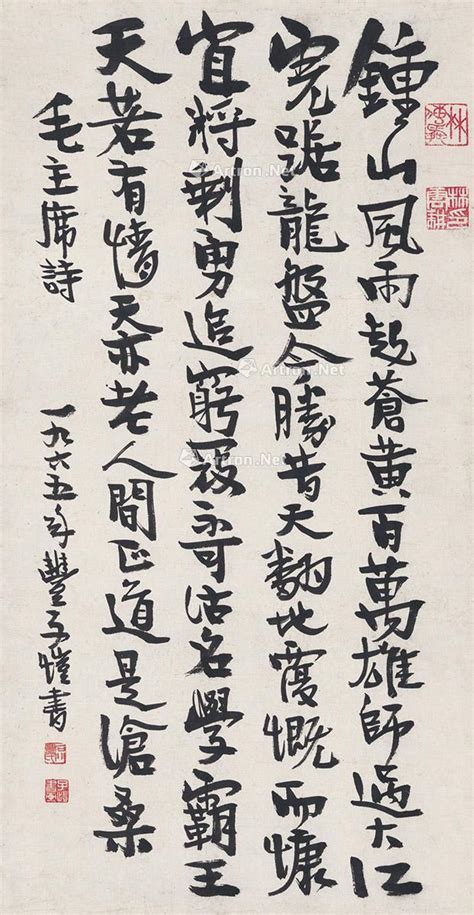 鍾山風雨起蒼黃百萬雄師過大江
虎踞龍盤今勝昔天翻地覆慨而慷
宜將剩勇追窮寇不可沽名學霸王
天若有情天亦老人間正道是滄桑
毛主席詩
一九六五年豐子愷書
Artron.Net
Artron.Net
Artron.Net
Artron.Net